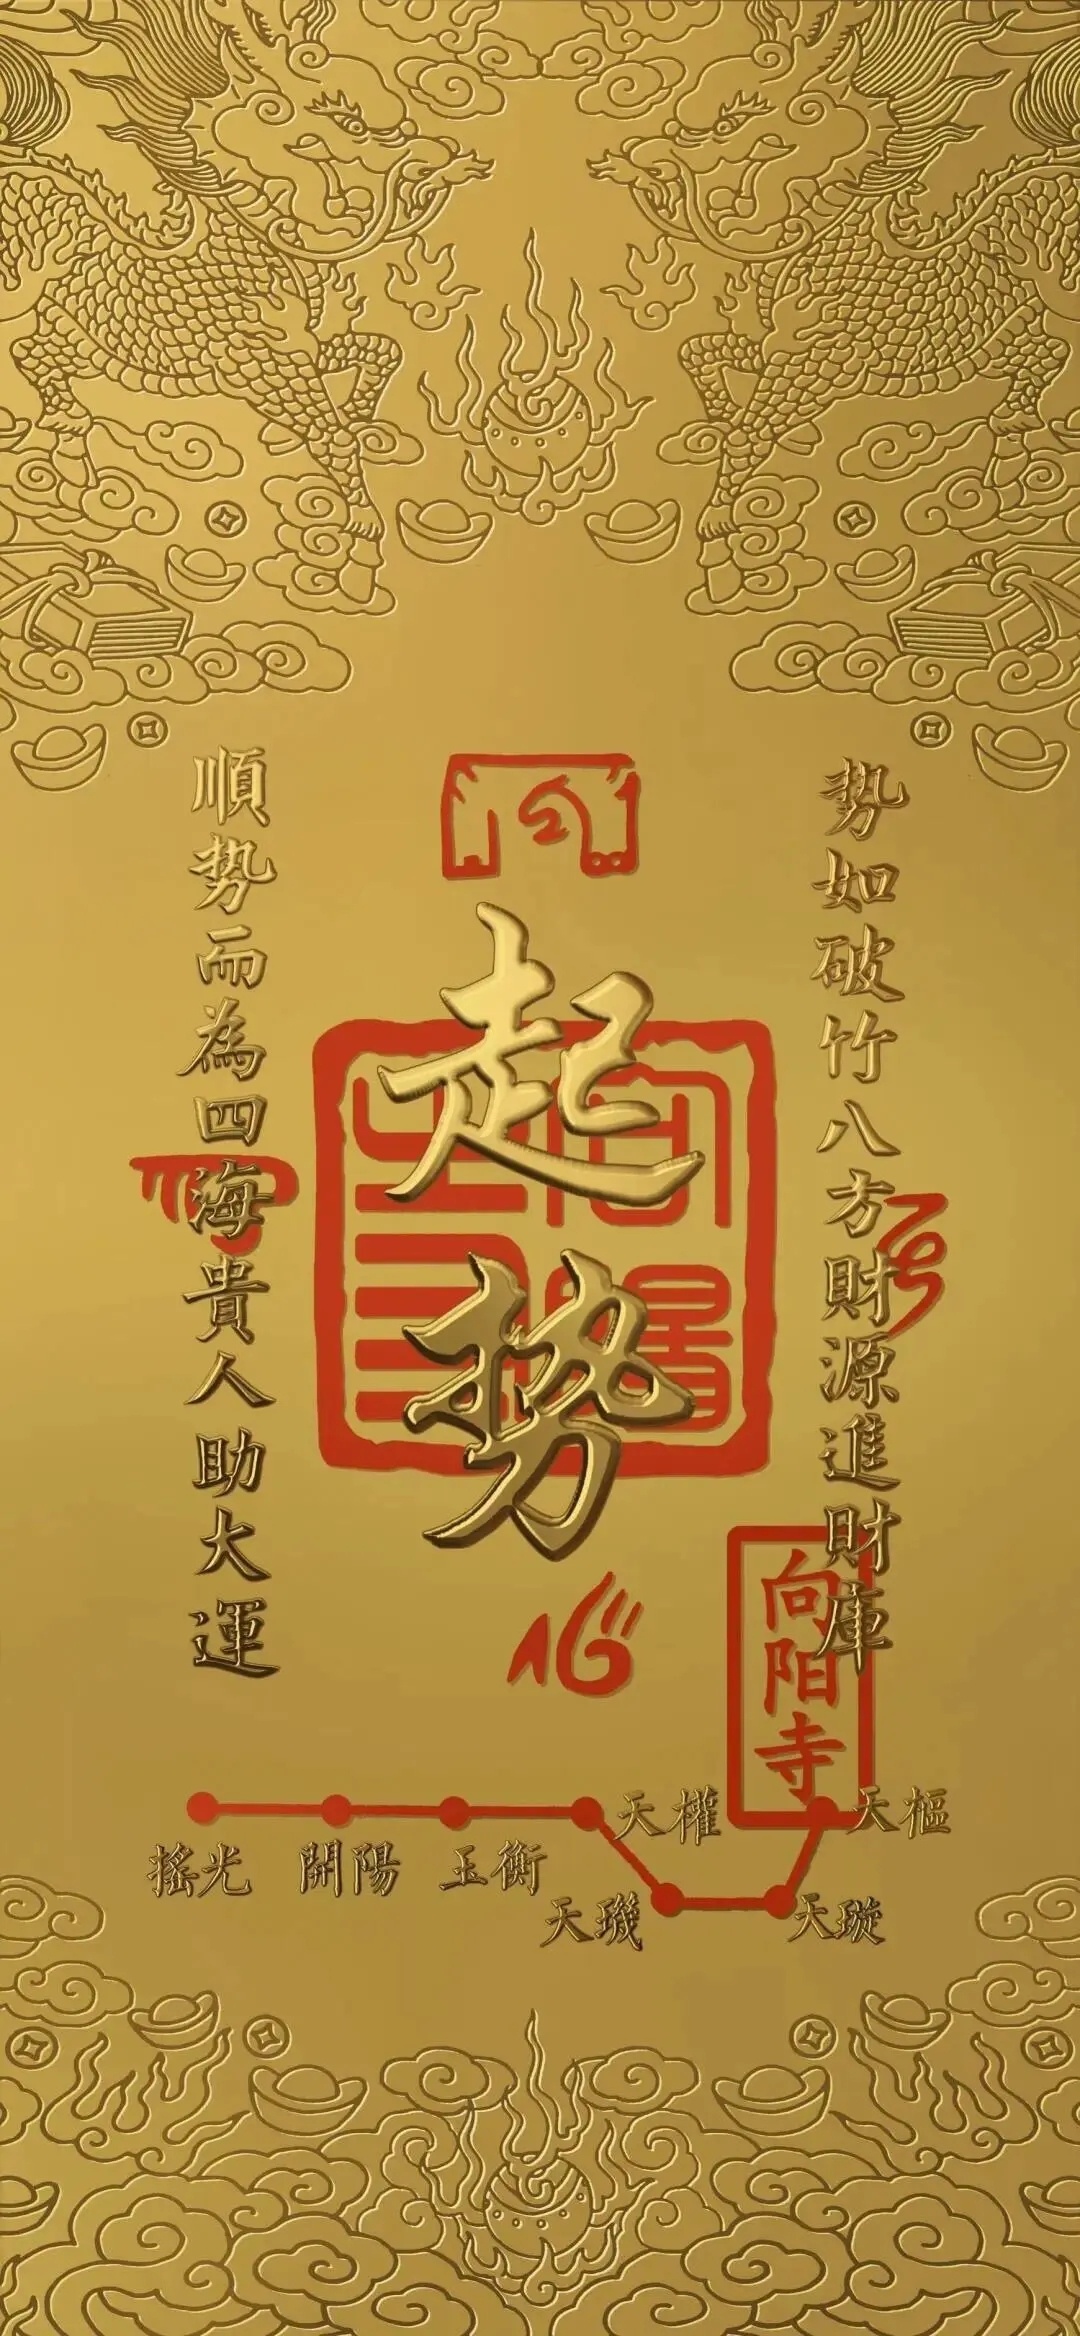 起势
势如破竹八方財源進財庫
順势而為四海貴人助大運
向阳寺
搖光
開陽
玉衡
天權
天璣
天璇
天樞